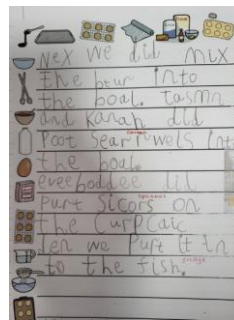 Nex we did mix
the btur into
the boal. Tasmn
and Kanah did
Poot Searruwels Into
the boal.
evee boddee did
Purt Sicors on
the CurPcaic
ten we Purt it in
to the fish.
fridge